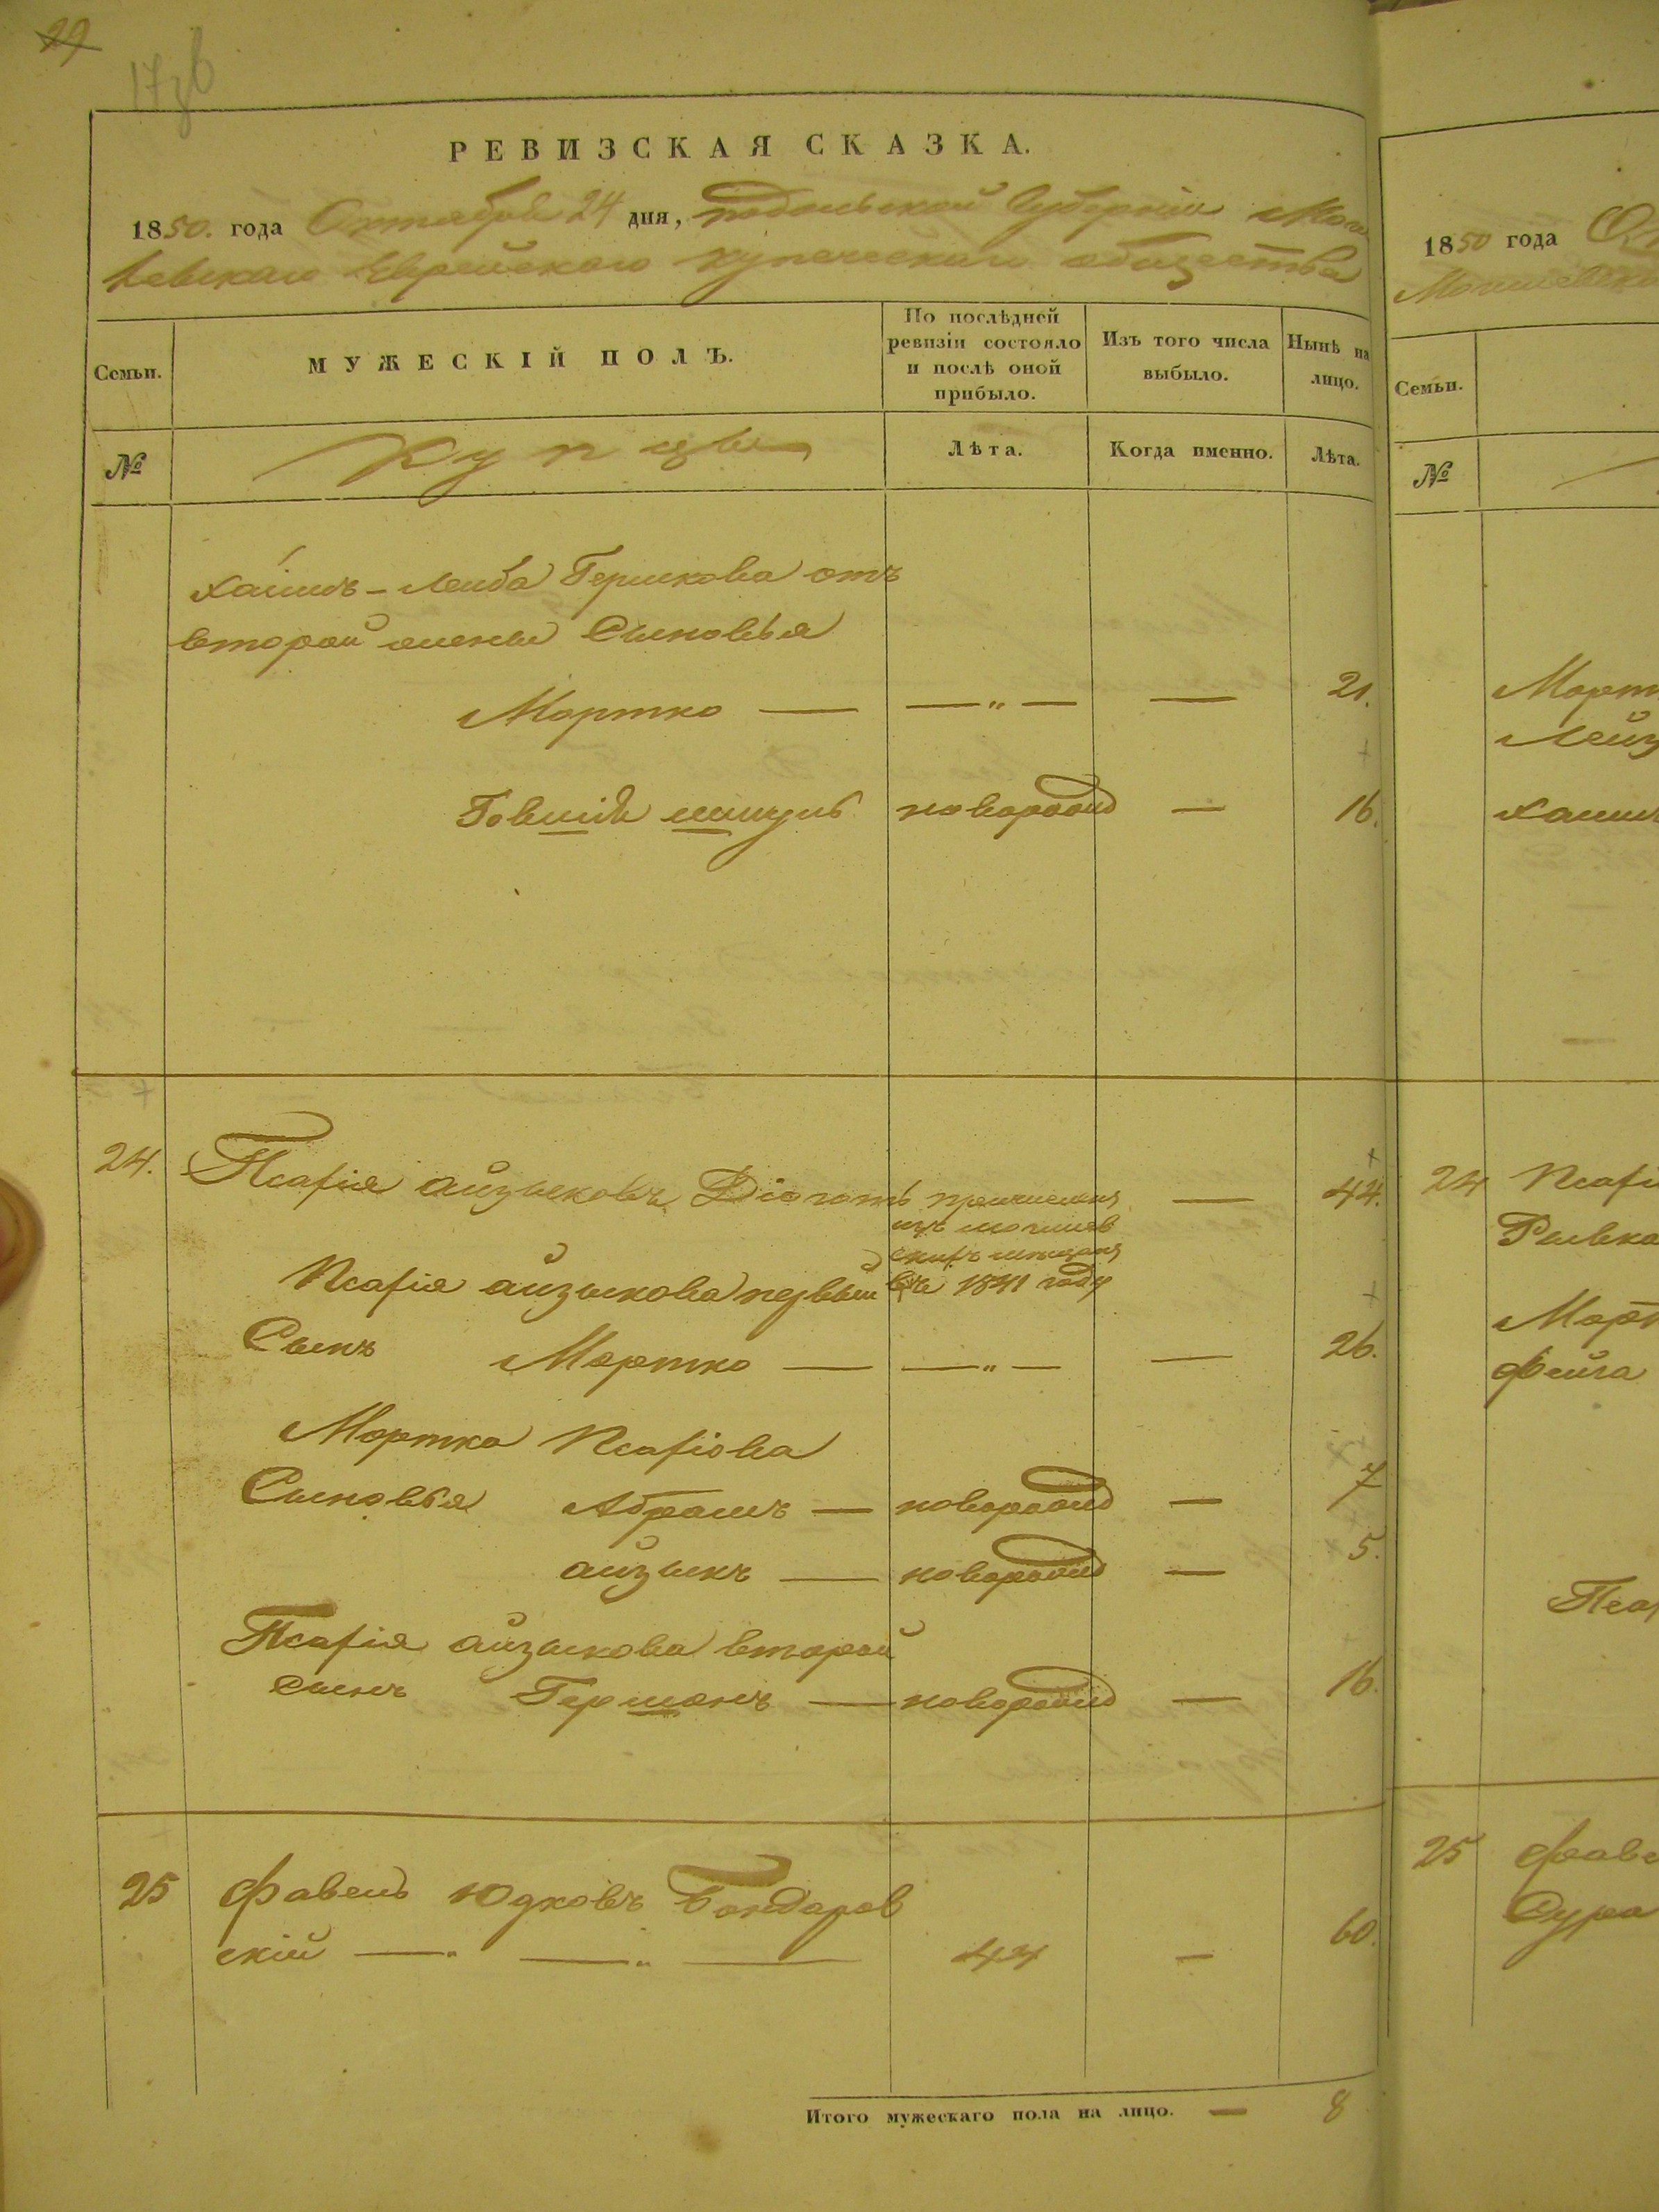 29
РЕВИЗСКАЯ СКАЗКА.
1850. года Октября 24 дня, подольской Губерніи Моги
левскаго Еврейскаго купеческаго общества
Семьи.
МУЖЕСКІЙ ПОЛЪ.
По послѣдней
ревизіи состояло
и послѣ оной
прибыло.
Изъ того числа
выбыло.
Нынѣ на
лицо.
№
Купцы
Лѣта.
Когда именно.
Лѣта.
Хаимъ - Лейба Гершкова отъ
второй жены Сыновья
Мортко — — „ — — 21.
Говшій новорожд — 16.
24. Псафія айзыковъ причисленъ — 44.
изъ могилев
скихъ мещанъ
Псафія айзыкова первый въ 1841 году
Сынъ Мортко — — „ — — 26.
Мортка Псафіова
Сыновья Абрамъ — новорожд — 7
айзыкъ — новорожд — 5.
Псафія айзыкова второй
сынъ Гершонъ — новорожд — 16.
25 Фавель Юдковъ Бондаров
скій — „ — „ — 44 — 60.
Итого мужескаго пола на лицо. — 8
1850 года
Семьи.
№
Морт
Лейз
Хаим
24 Псафі
Рывка
Морт
Фейга
Псаф
25 Фаве
Сура